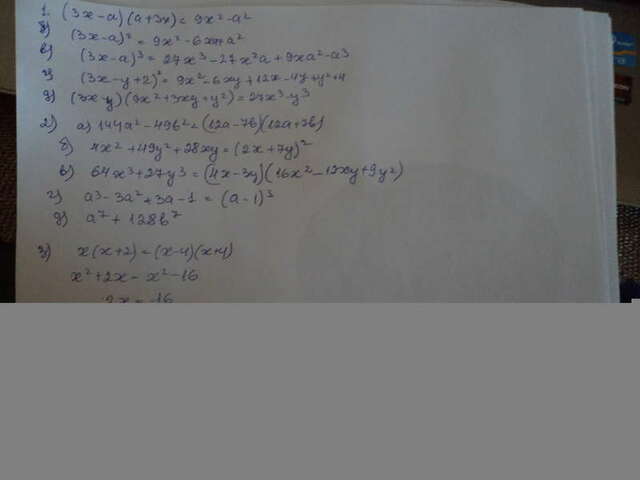 1. (3x-a)(a+3x)= 9x²-a²
б) (3x-a)² = 9x²-6xa+a²
в) (3x-a)³ = 27x³-27x²a+9xa²-a³
г) (3x-y+2)² = 9x²-6xy+12x-4y+y²+4
д) (3x-y)(9x²+3xy+y²)=27x³-y³
2) а) 144a²-49b²=(12a-7b)(12a+7b)
б) 4x²+49y²+28xy=(2x+7y)²
в) 64x³+27y³=(4x-3y)(16x²-12xy+9y²)
г) a³-3a²+3a-1 = (a-1)³
д) a⁷+128b⁷
3) x(x+2)=(x-4)(x+4)
x²+2x-x²-16
2x = -16